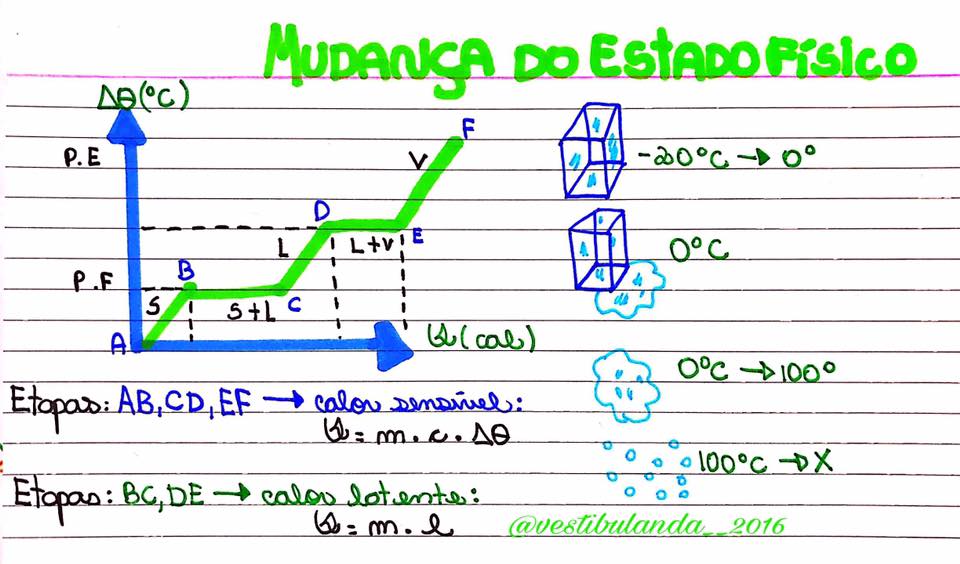 MUDANÇA DO ESTADO FÍSICO
Δθ(°C)
P.E
P.F
A
B
C
D
E
F
S
S+L
L
L+V
V
Q(cal)
-20°C → 0°
0°C
0°C → 100°
100°C → X
Etapas: AB, CD, EF → calor sensível:
Q = m.c.Δθ
Etapas: BC, DE → calor latente:
Q = m.l
@vestibulanda__2016